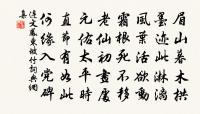 眉山墓木拱
墨迹此淋漓
風葉活欲動
霜根死不移
老仙初畫處
元佑太平時
直節有如此
何緣入党碑
連文鳳東坡竹詞典網
集